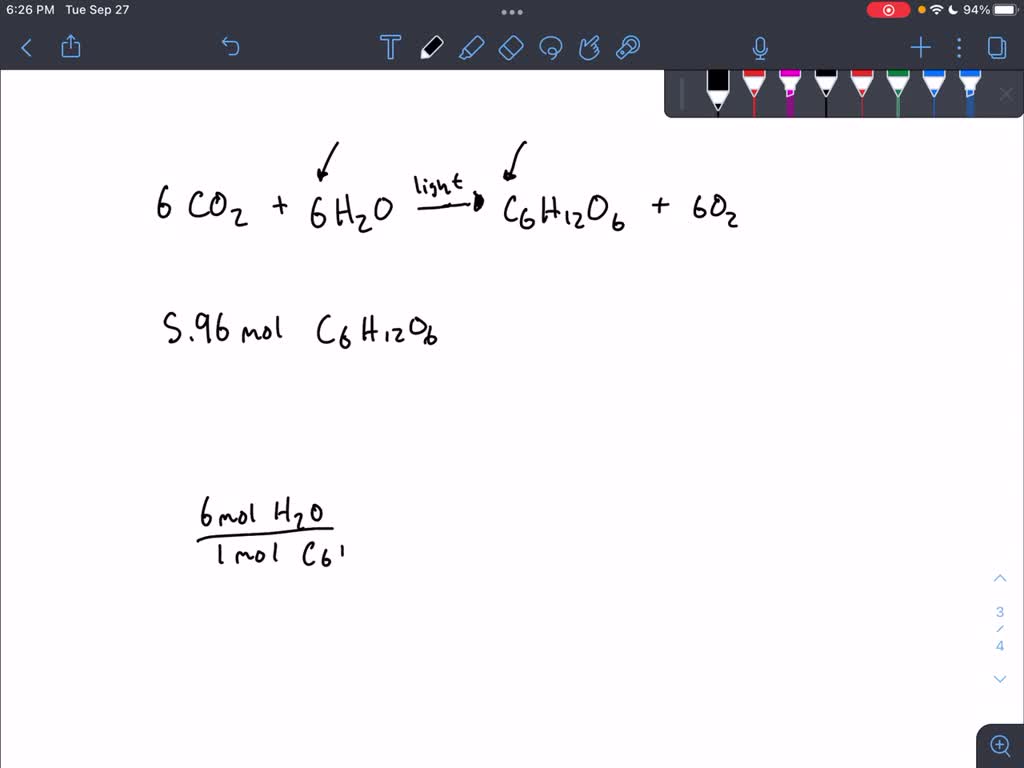 6:26 PM Tue Sep 27
94%
light
6 CO₂ + 6H₂O → C₆H₁₂O₆ + 6O₂
5.96 mol C₆H₁₂O₆
6 mol H₂O
1 mol C₆
3
/
4